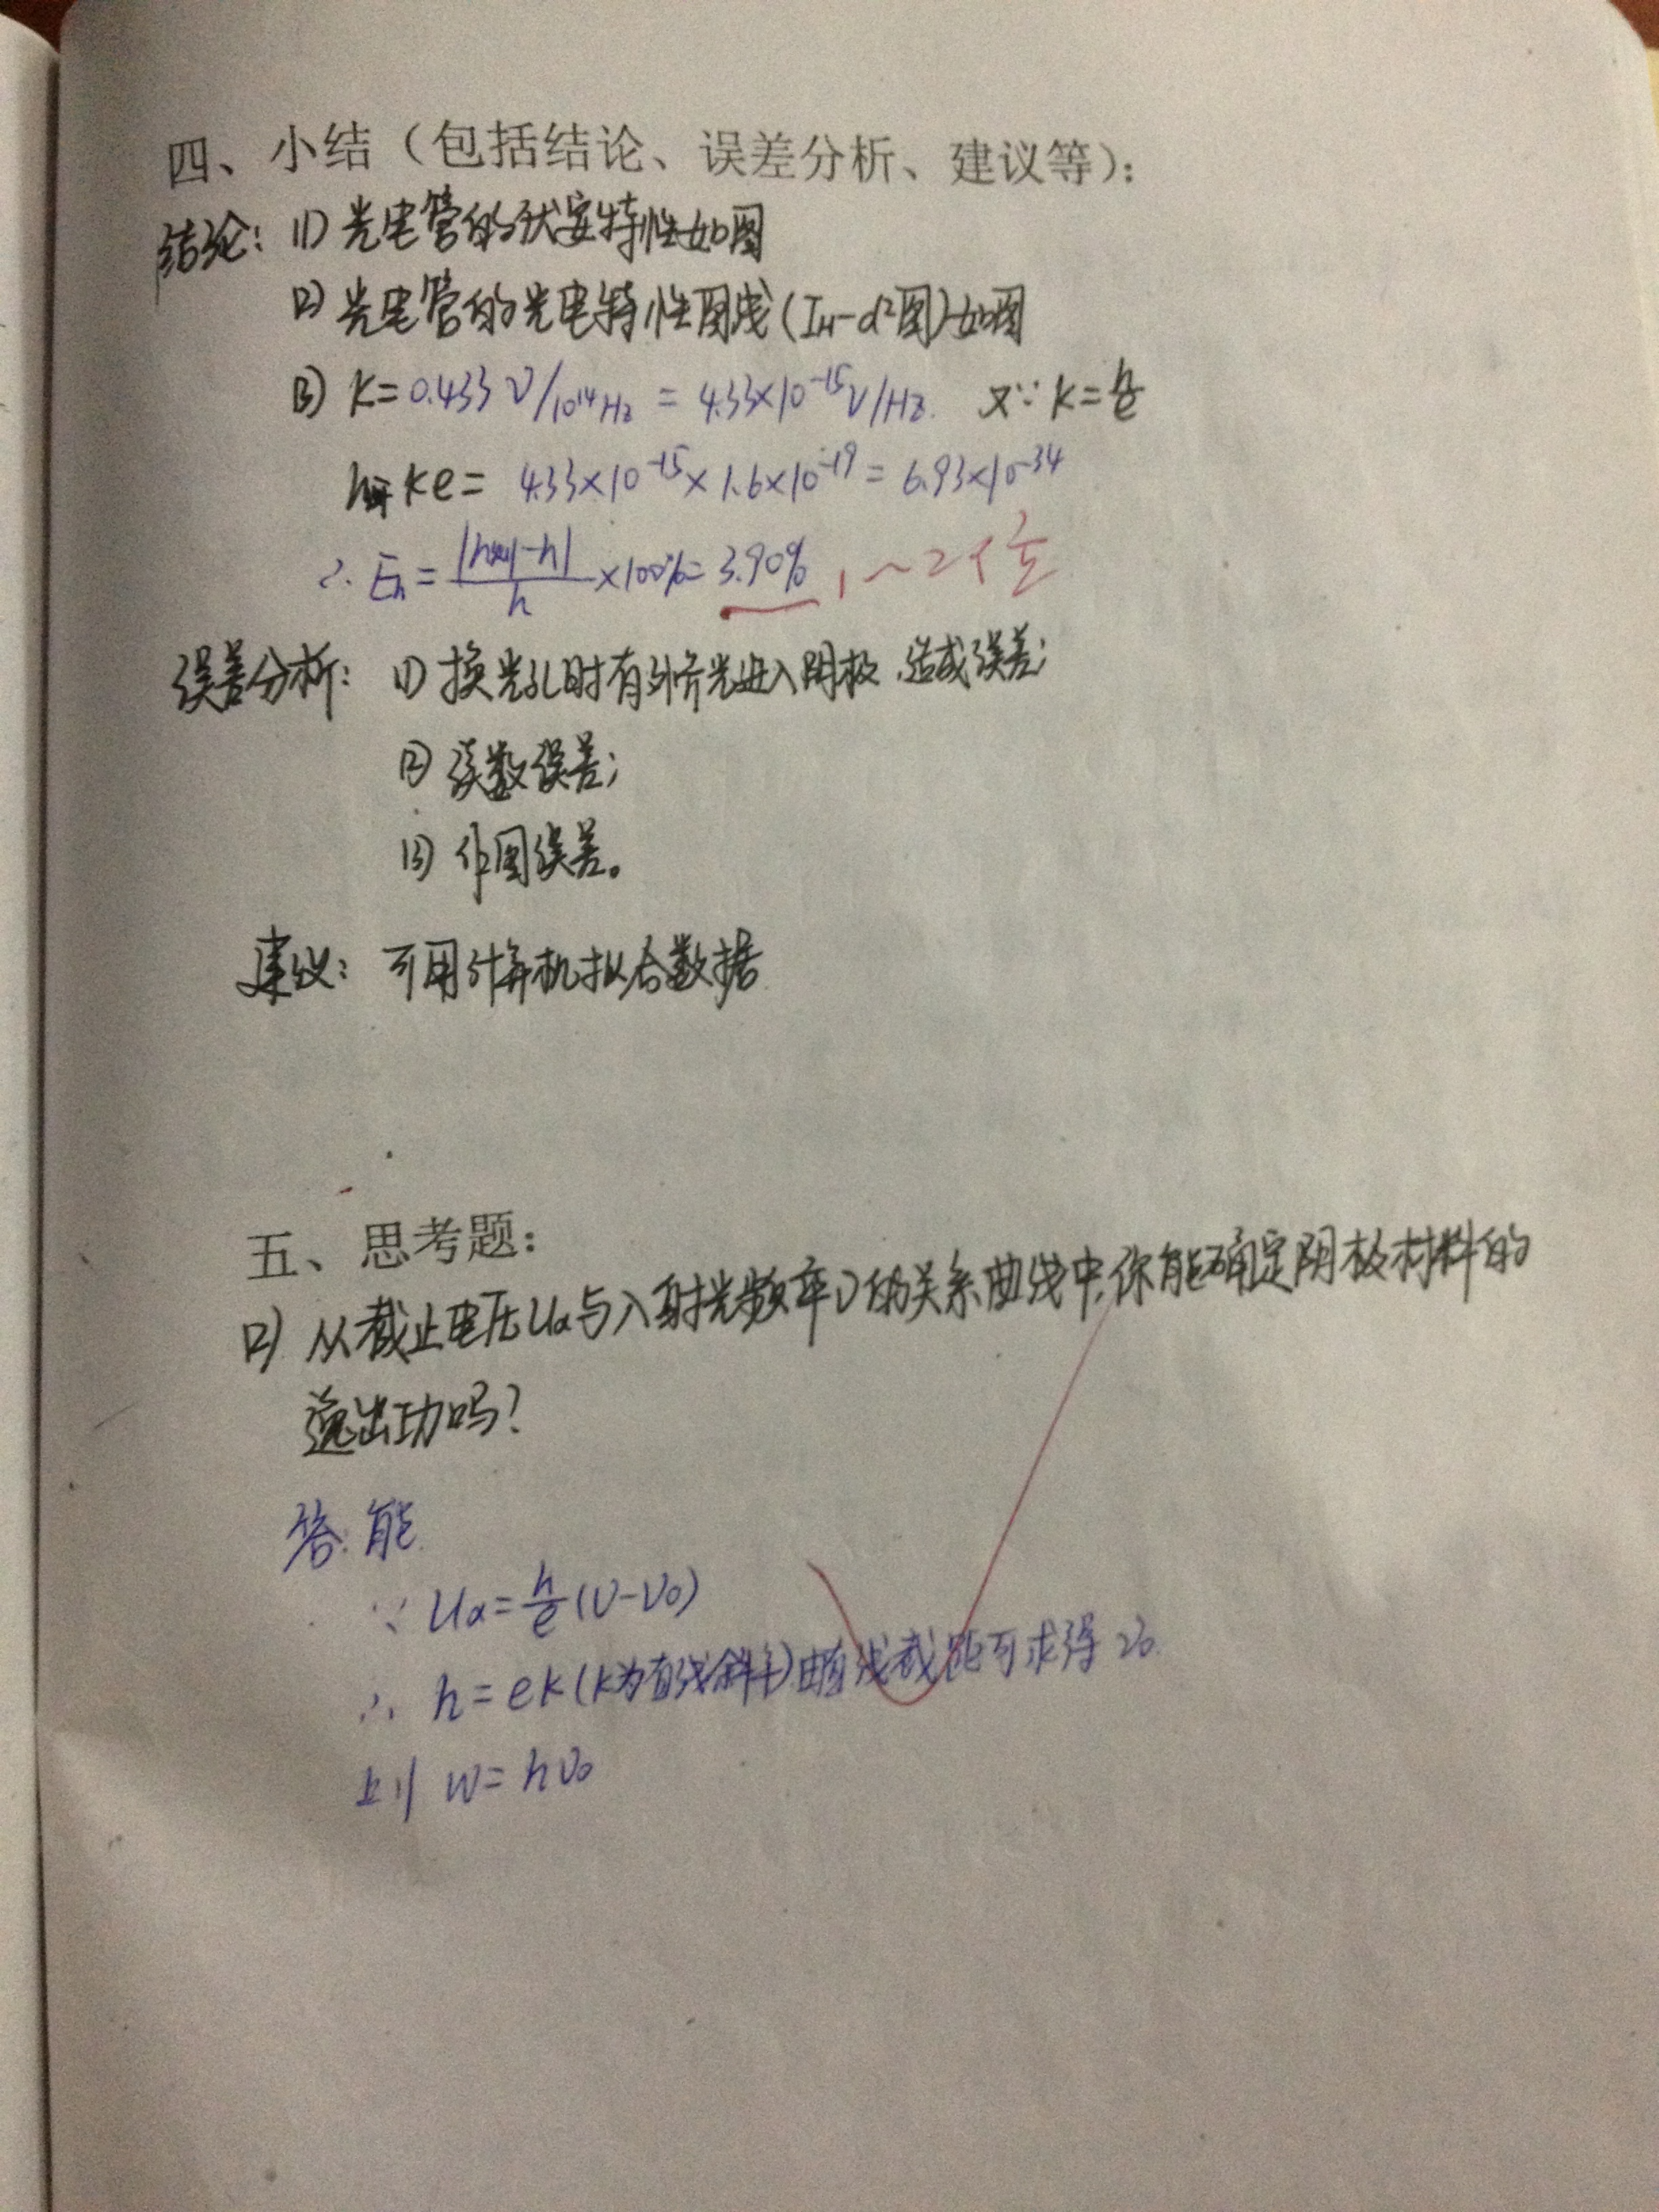 四、小结（包括结论、误差分析、建议等）：
结论: (1) 光电管的伏安特性如图
(2) 光电管的光电特性图线(IH-d²图)如图
(3) K=0.433 V/10¹⁴Hz = 4.33×10⁻¹⁵V/Hz. 又∵ K=h/e
h= Ke= 4.33×10⁻¹⁵×1.6×10⁻¹⁹= 6.93×10⁻³⁴
∴ Eh= |h测-h|/h ×100%= 3.90% 1~2个立
误差分析: (1) 换光孔时有外界光进入阴极,造成误差;
(2) 读数误差;
(3) 作图误差。
建议: 可用计算机拟合数据.
五、思考题：
(2) 从截止电压Ua与入射光频率ν的关系曲线中,你能确定阴极材料的
逸出功吗?
答: 能.
∵ Ua=h/e(ν-ν₀)
∴ h=eK(K为直线斜率)由直线截距可求得ν₀.
则 W=hν₀